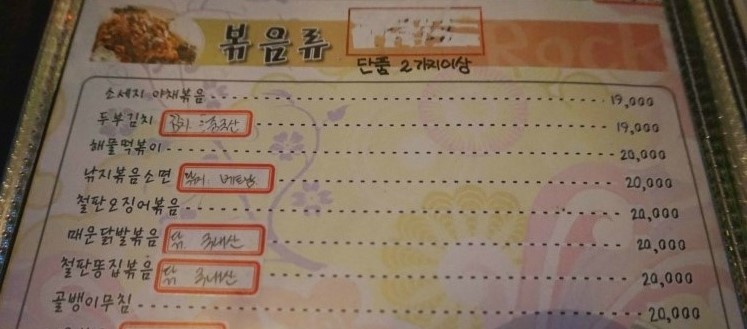 볶음류
단품 2가지이상
소세지 야채볶음 19,000
두부김치 김치:중국산 19,000
해물떡볶이 20,000
낚지볶음소면 낚지. 베트남 20,000
철판오징어볶음 20,000
매운닭발볶음 닭 국내산 20,000
철판똥집볶음 닭 국내산 20,000
골뱅이무침 20,000